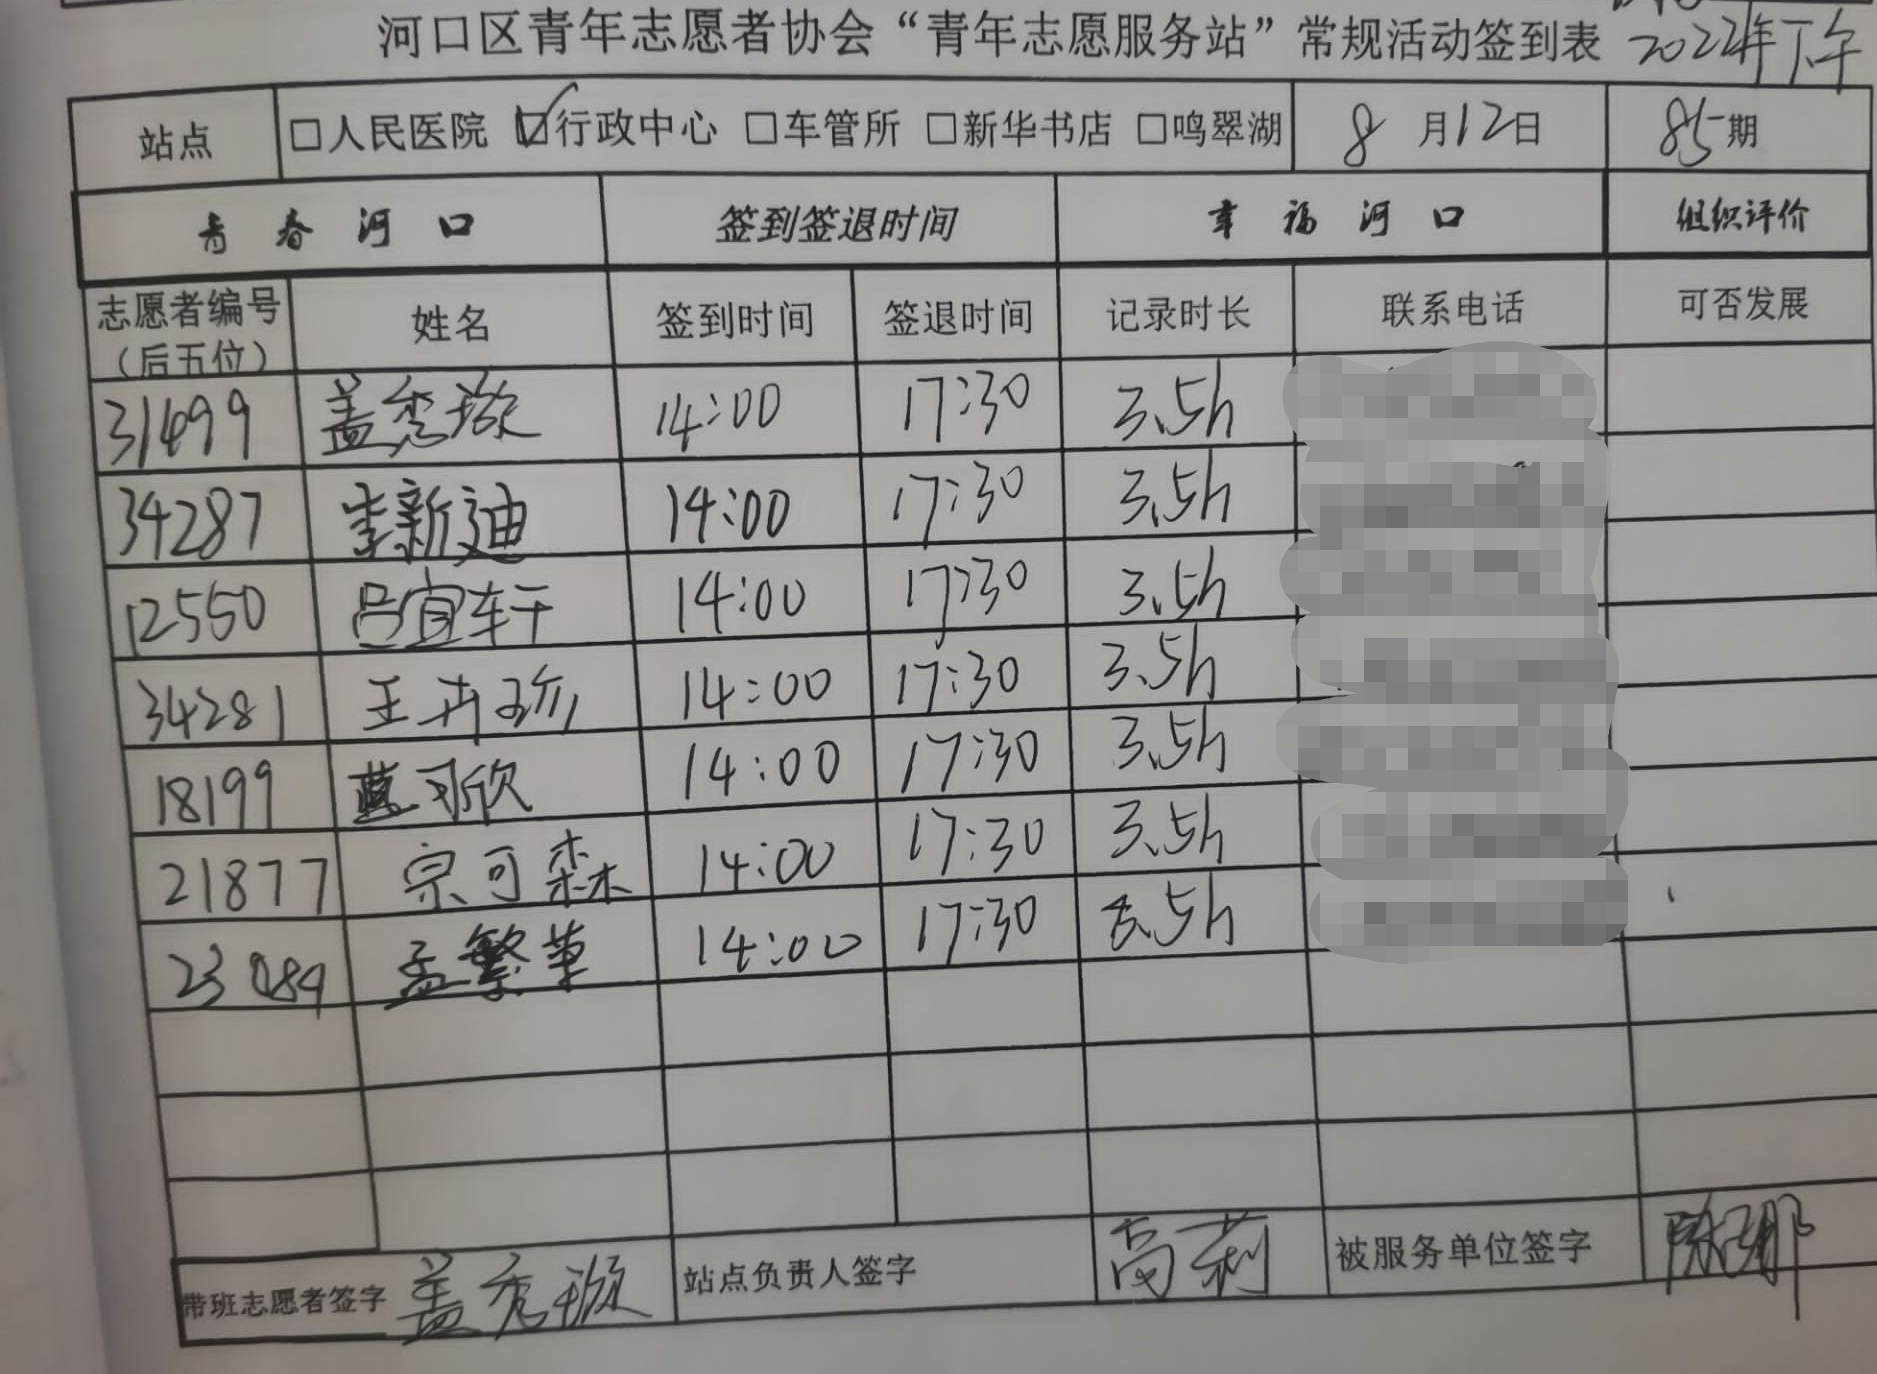 河口区青年志愿者协会“青年志愿服务站”常规活动签到表 2022年下午
站点 □人民医院 ☑行政中心 □车管所 □新华书店 □鸣翠湖 8月12日 85期
青春河口 签到签退时间 幸福河口 组织评价
志愿者编号（后五位） 姓名 签到时间 签退时间 记录时长 联系电话 可否发展
31499 盖秀璇 14:00 17:30 3.5h
34287 李新迪 14:00 17:30 3.5h
12550 吕宜轩 14:00 17:30 3.5h
34281 王卉珍 14:00 17:30 3.5h
18199 可欣 14:00 17:30 3.5h
21877 宗可森 14:00 17:30 3.5h
23089 孟繁草 14:00 17:30 3.5h
带班志愿者签字 盖秀璇 站点负责人签字 高莉 被服务单位签字